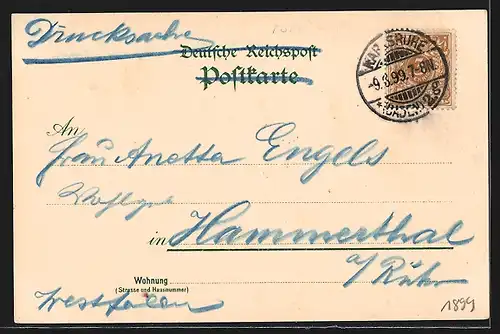 Drucksache
Deutsche Reichspost
Postkarte
KARLSRUHE
-9.8.99.7-8N.
*(BADEN) 2.a.
An
Frau Anetta Engels
Wohlgb
in Hammerthal
a/Ruhr
Wohnung
(Strasse und Hausnummer)
Westfalen
1899